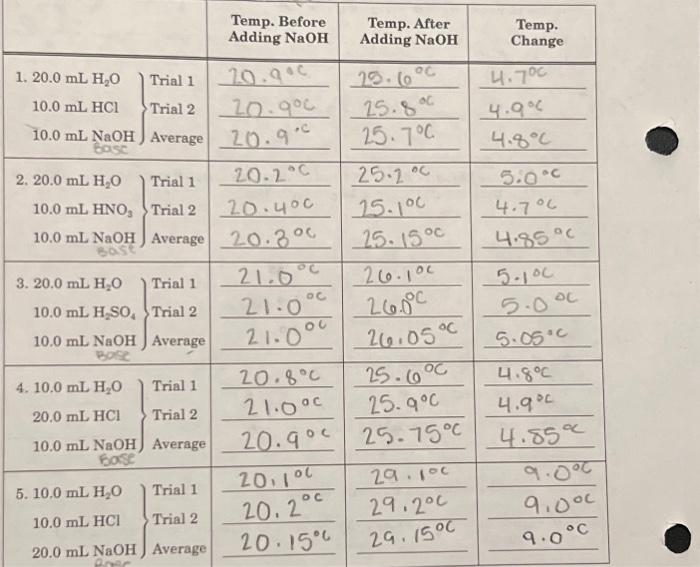 Temp. Before Adding NaOH Temp. After Adding NaOH Temp. Change
1. 20.0 mL H₂O Trial 1 20.9°C 25.6°C 4.7°C
10.0 mL HCl Trial 2 20.9°C 25.8°C 4.9°C
10.0 mL NaOH Average 20.9°C 25.7°C 4.8°C
Base
2. 20.0 mL H₂O Trial 1 20.2°C 25.2°C 5.0°C
10.0 mL HNO₃ Trial 2 20.4°C 25.1°C 4.7°C
10.0 mL NaOH Average 20.3°C 25.15°C 4.85°C
Base
3. 20.0 mL H₂O Trial 1 21.0°C 26.1°C 5.1°C
10.0 mL H₂SO₄ Trial 2 21.0°C 26.0°C 5.0°C
10.0 mL NaOH Average 21.0°C 26.05°C 5.05°C
Base
4. 10.0 mL H₂O Trial 1 20.8°C 25.6°C 4.8°C
20.0 mL HCl Trial 2 21.0°C 25.9°C 4.9°C
10.0 mL NaOH Average 20.9°C 25.75°C 4.85°C
Base
5. 10.0 mL H₂O Trial 1 20.1°C 29.1°C 9.0°C
10.0 mL HCl Trial 2 20.2°C 29.2°C 9.0°C
20.0 mL NaOH Average 20.15°C 29.15°C 9.0°C